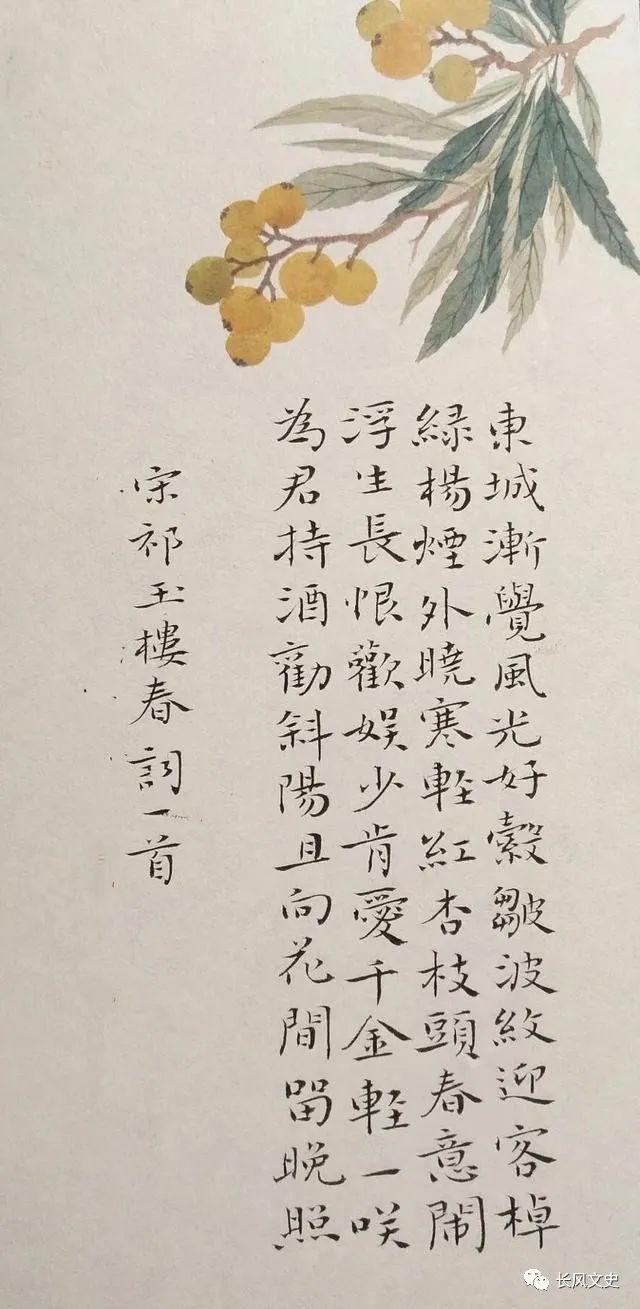 東城漸覺風光好縠皺波紋迎客棹
緑楊煙外曉寒軽紅杏枝頭春意鬧
浮生長恨歡娱少肯愛千金軽一咲
為君持酒勸斜陽且向花間留晚照
宋祁玉樓春詞一首
长风文史